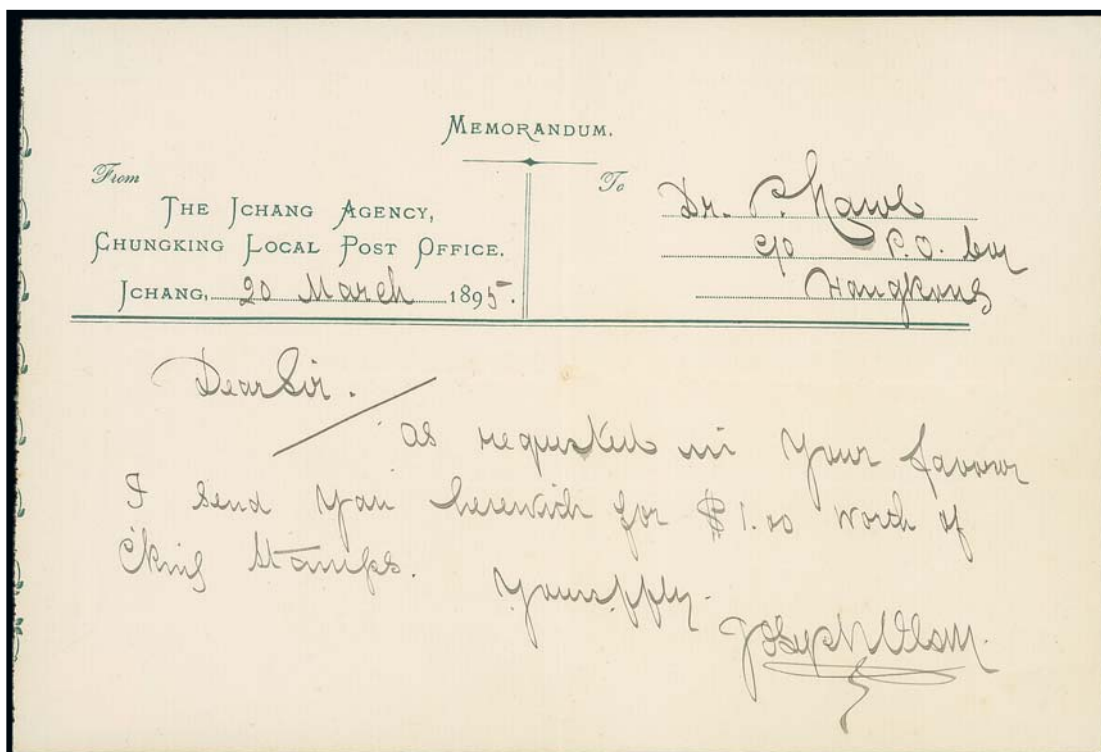 MEMORANDUM.
From
THE ICHANG AGENCY,
CHUNGKING LOCAL POST OFFICE.
ICHANG, 20 March 1895.
To
Dr. P.
c/o P.O. box
Hongkong
Dear Sir.
as requested in your favour
I send you herewith for $1.00 worth of
C'king Stamps.
Yours ffly.
Joseph